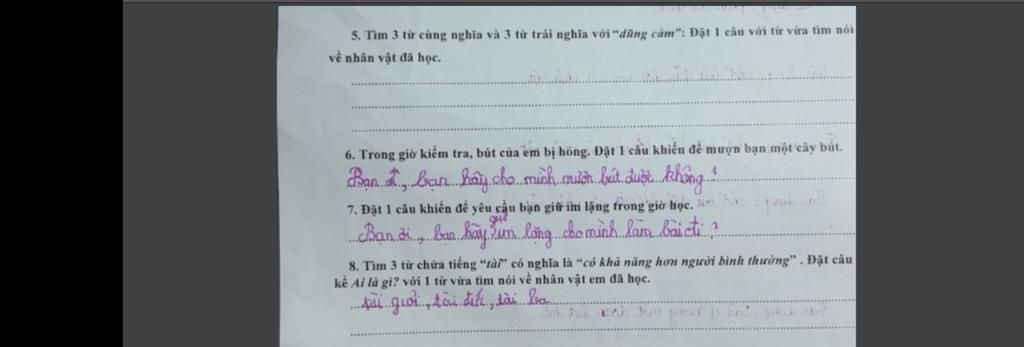 5. Tìm 3 từ cùng nghĩa và 3 từ trái nghĩa với "dũng cảm": Đặt 1 câu với từ vừa tìm nói
về nhân vật đã học.
6. Trong giờ kiểm tra, bút của em bị hỏng. Đặt 1 câu khiến để mượn bạn một cây bút.
Bạn ơi, bạn hãy cho mình mượn bút được không?
7. Đặt 1 câu khiến để yêu cầu bạn giữ im lặng trong giờ học.
Bạn ơi, bạn hãy giữ im lặng cho mình làm bài đi?
8. Tìm 3 từ chứa tiếng "tài" có nghĩa là "có khả năng hơn người bình thường" . Đặt câu
kể Ai là gì? với 1 từ vừa tìm nói về nhân vật em đã học.
tài giỏi, tài đức, tài hoa